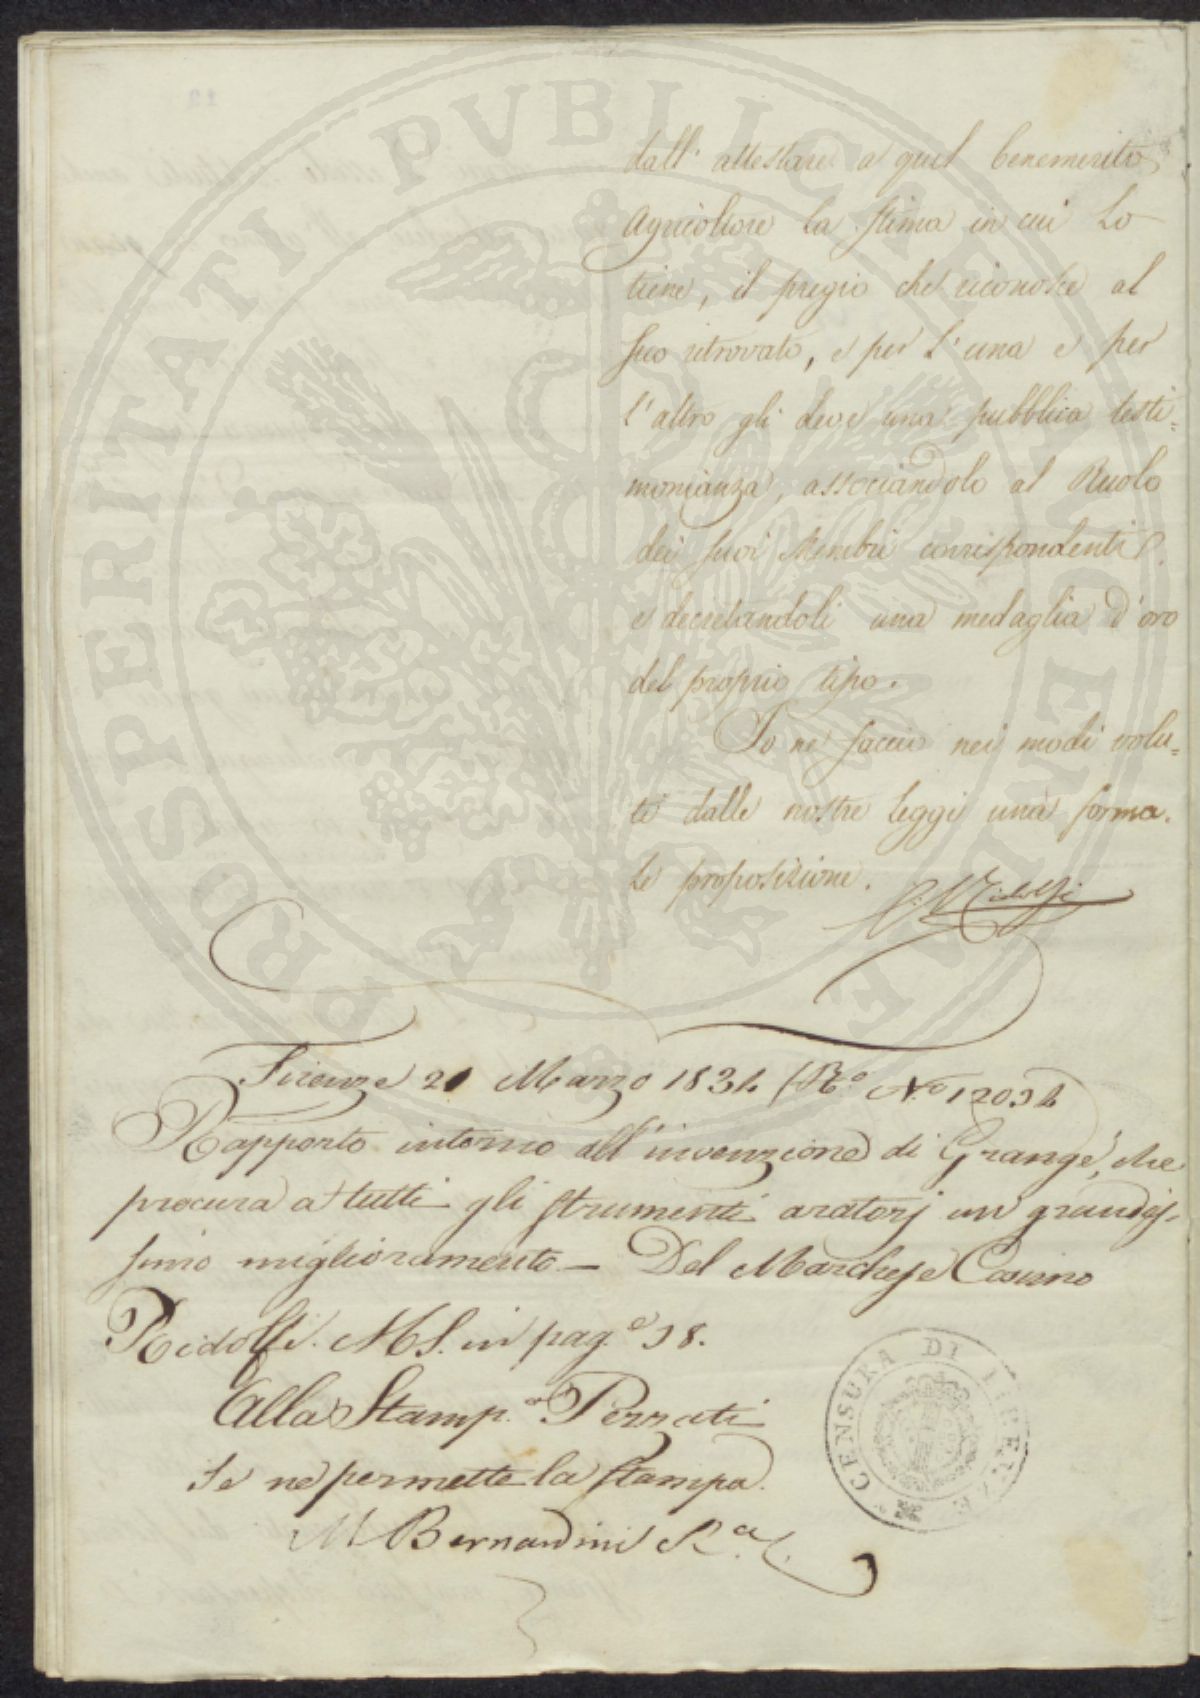 dall' attestare a quel benemerito
Agricoltore la stima in cui lo
tiene, il pregio che riconosce al
suo ritrovato, e per l'una e per
l'altro gli deve una pubblica testi=
monianza, associandolo al Ruolo
dei suoi Membri corrispondenti
e decretandoli una medaglia d'oro
del proprio tipo.
Io ne faccio nei modi volu=
ti dalle nostre leggi una forma.
le proposizione.
C. Ridolfi
Firenze 20 Marzo 1834 (R.º N.º 12034
Rapporto intorno all'invenzione di Grangé, che
procura a tutti gli strumenti aratorj un grandis-
simo miglioramento — Del Marchese Cosimo
Ridolfi. MS. in pag.e 38.
Alla Stamp.a Pezzati
Se ne permette la stampa.
M Bernardini R.a C.
CENSURA DI
PROSPERITATI PVBLICAE AVGENDAE